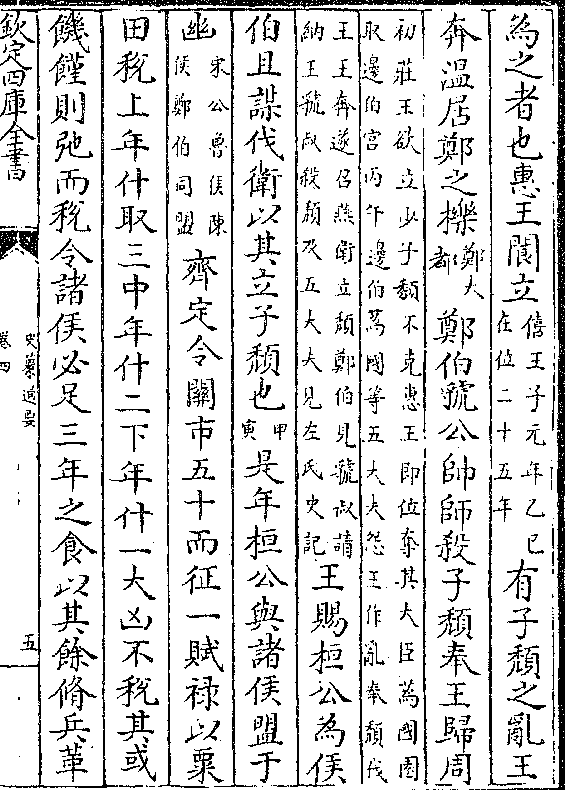 為之者也惠王閬立僖王子元年乙巳在位二十五年有子頹之亂王
奔溫居鄭之櫟鄭大都鄭伯虢公帥師殺子頹奉王歸周
初莊王欲立少子頹不克惠王即位奪其大臣蒍國圉
取邊伯宮丙午邊伯蒍國等五大夫怨王作亂奉頹伐
王王奔遂召燕衛立頹鄭伯見虢叔請
納王虢叔殺頹及五大夫見左氏史記王賜桓公為侯
伯且謀伐衛以其立子頹也甲寅是年桓公與諸侯盟于
幽宋公魯侯陳侯鄭伯同盟齊定令關市五十而征一賦祿以粟
田稅上年什取三中年什二下年什一大凶不稅其或
饑饉則弛而稅令諸侯必足三年之食以其餘脩兵革
欽定四庫全書
卷四
五